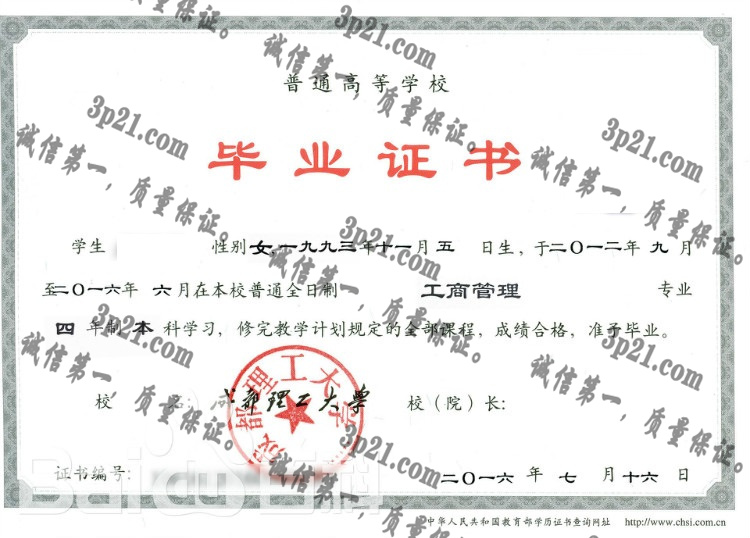 普通高等学校
毕业证书
学生 性别 女，一九九三年十一月五 日生，于二〇一二年 九 月
至二〇一六年 六 月在本校普通全日制 工商管理 专业
四 年制 本 科学习，修完教学计划规定的全部课程，成绩合格，准予毕业。
校 名：成都理工大学 校（院）长：
成都理工大学
证书编号： 二〇一六 年 七 月 十六 日
中华人民共和国教育部学历证书查询网址 http://www.chsi.com.cn
Baidu百科
3p21.com
诚信第一，质量保证。
3p21.com
诚信第一，质量保证。
3p21.com
诚信第一，质量保证。
3p21.com
诚信第一，质量保证。
3p21.com
诚信第一，质量保证。
3p21.com
诚信第一，质量保证。
3p21.com
诚信第一，质量保证。